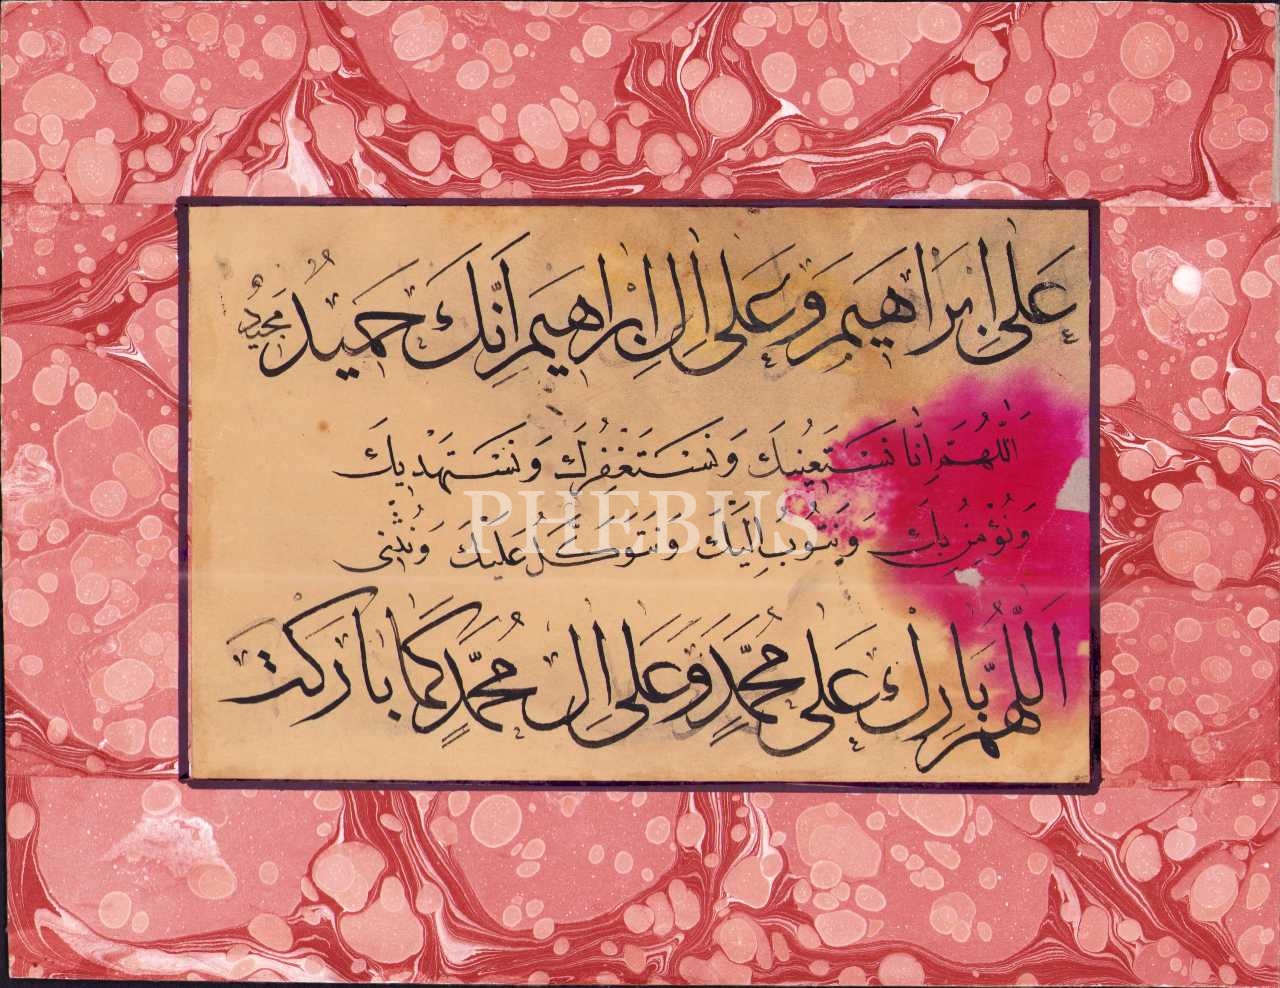 عَلٰى اِبْرَاهِيمَ وَعَلٰى اٰلِ اِبْرَاهِيمَ اِنَّكَ حَمِيدٌ مَجِيدٌ
اَللّٰهُمَّ اِنَّا نَسْتَعِينُكَ وَنَسْتَغْفِرُكَ وَنَسْتَهْدِيكَ
وَنُؤْمِنُ بِكَ وَنَتُوبُ اِلَيْكَ وَنَتَوَكَّلُ عَلَيْكَ وَنُثْنِى
PHEBUS
اَللّٰهُمَّ بَارِكْ عَلٰى مُحَمَّدٍ وَعَلٰى اٰلِ مُحَمَّدٍ كَمَا بَارَكْتَ